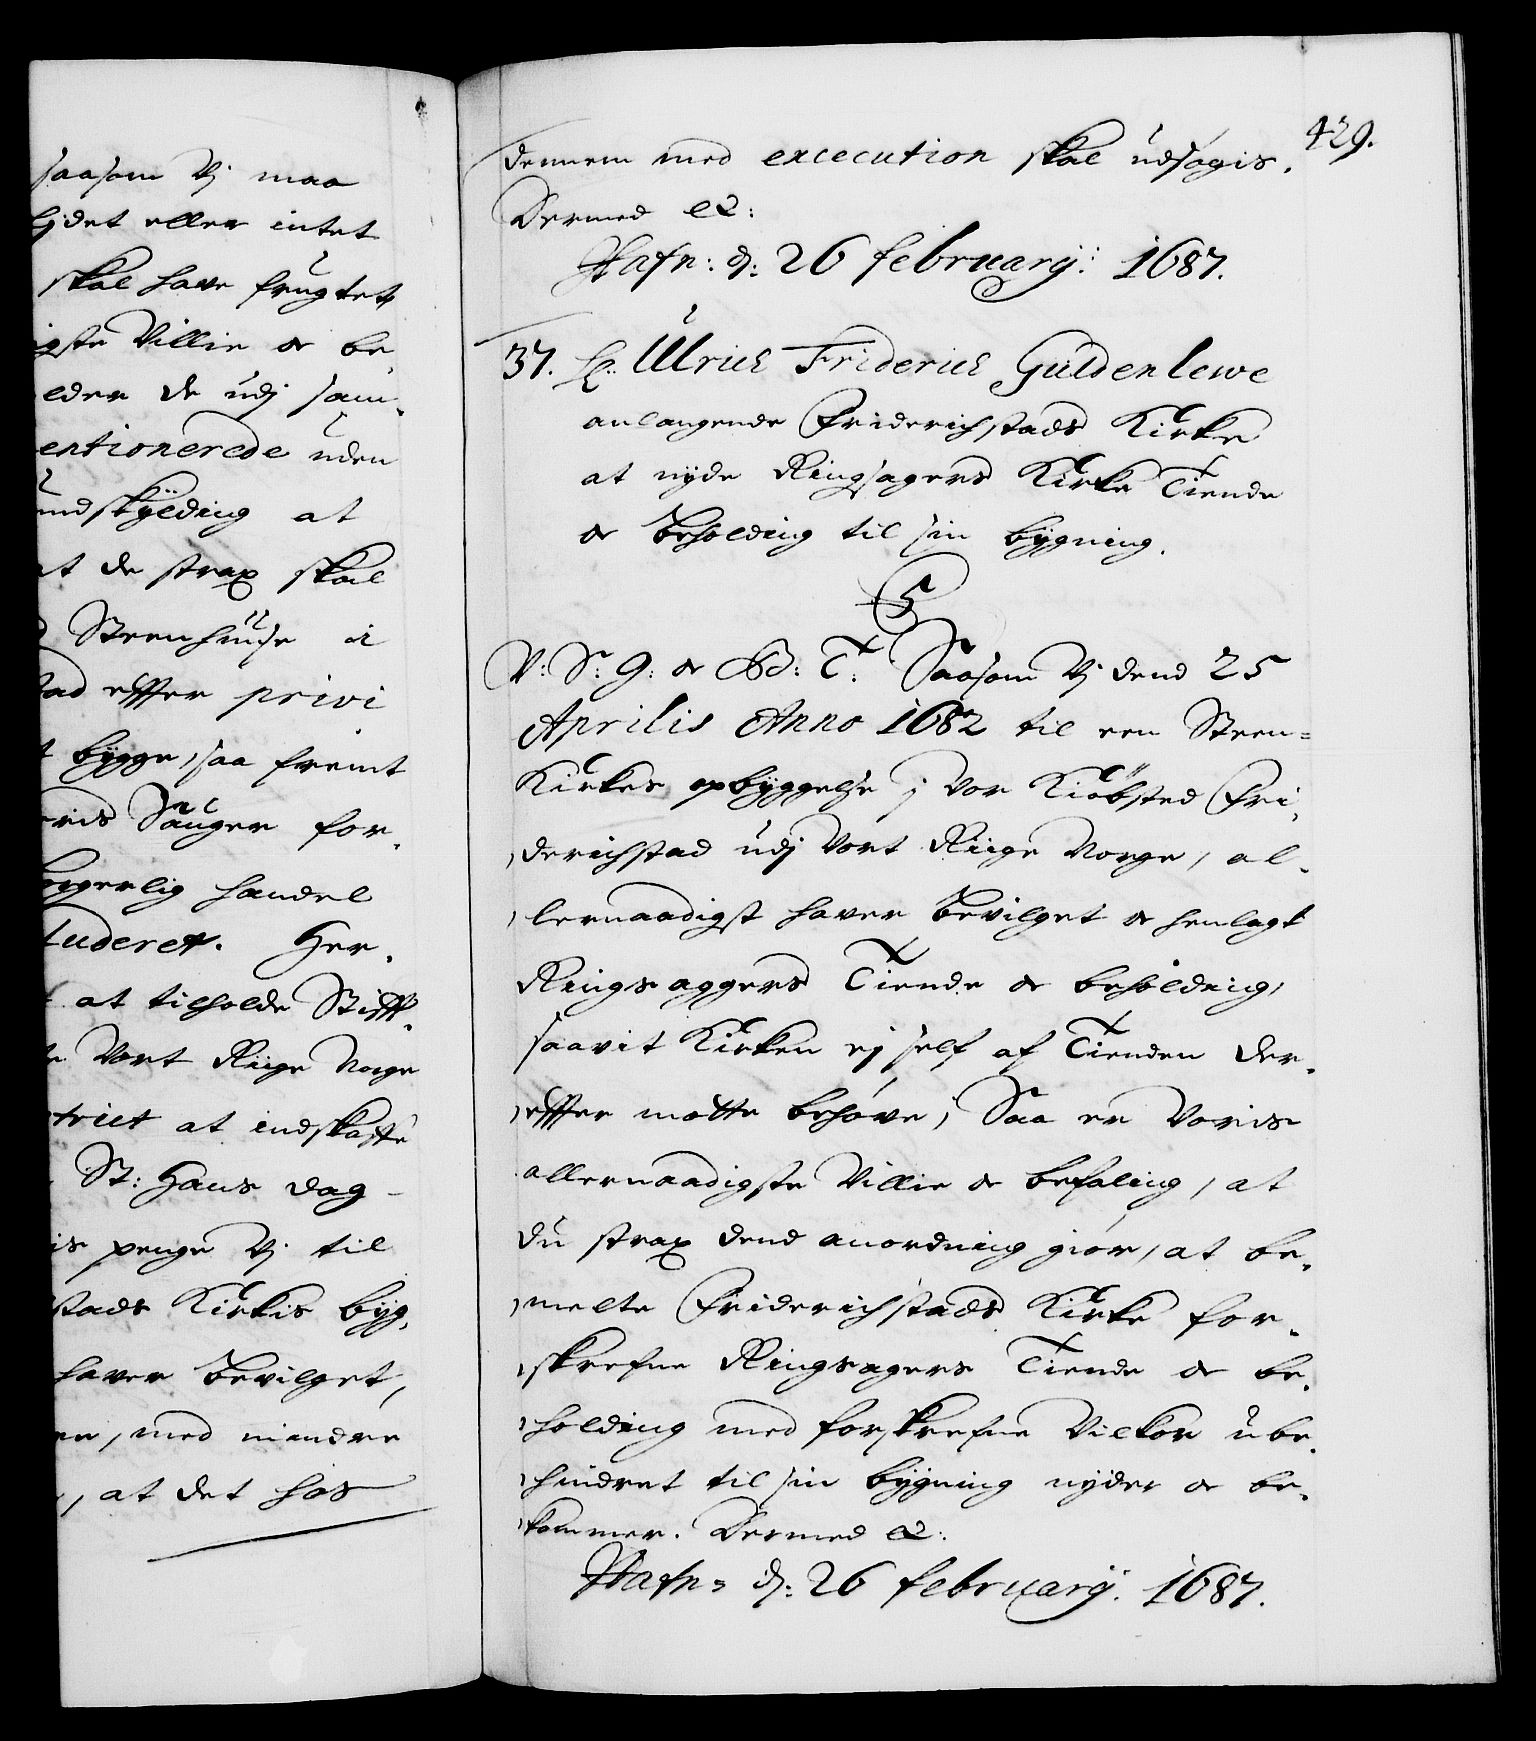 saasom Vj maa
lydet eller intet
skal have frugtet
igste Villie og be,
elder de udj sam-
entionerede uden
undskylding at
at de strax skal
Steenhuuse i
stad effter privi
bygge, saa fremt
voris Sauger for-
borgerlig handel
tuderet. Her-
at tilholde Stifft-
Vort Riige Norge
trict at indskaffe
St: Hans dag
penge Vj til
stads Kirkis byg,
haver bevilget,
med mindre
, at det hos
429.
dennem med excecution skal udsøgis.
Dermed etc:
Hafn: d: 26 februarij: 1687.
37. Hr: Ulrich Friderich Güldenlewe
anlangende Friderichstads Kirke
at nyde Ringsagers Kirke Tiende
og beholding til sin bygning.
C5
V: S: G: og B: T: Saasom Vj dend 25
Aprilis Anno 1682 til een Steen=
Kirkes opbyggelse j vor Kiøbsted Fri-
derichstad udj Vort Riige Norge, al-
lernaadigst haver bevilget og henlagt
Ringsaggers Tiende og beholding,
saavit Kirken ej self af Tienden der-
effter motte behøve, Saa er Voris
allernaadigste Villie og befaling, at
du strax dend anordning giør, at be-
melte Friderichstads Kirke for-
skrefne Ringsagers Tiende og be-
holding med forskrefne Vilkor ube-
hindret til sin bygning nyder og be-
kommer. Dermed etc:
Hafn= d: 26 februarij. 1687.